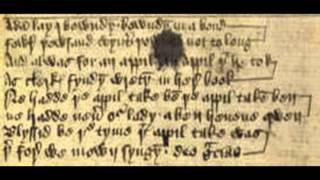 Adam lay i bowndyn bowndyn in a bond
fowr þowsand wynter not to long
And al was for an appil an appil þt he tok
As clerkis fyndyn wretyn in here book
Ne hadde þe appil take ben þe appil taken ben
ne hadde neuer our lady a ben heuene qwen
Blyssid be þe tyme þt appil take was
þer fore we mown syngyn deo gracias